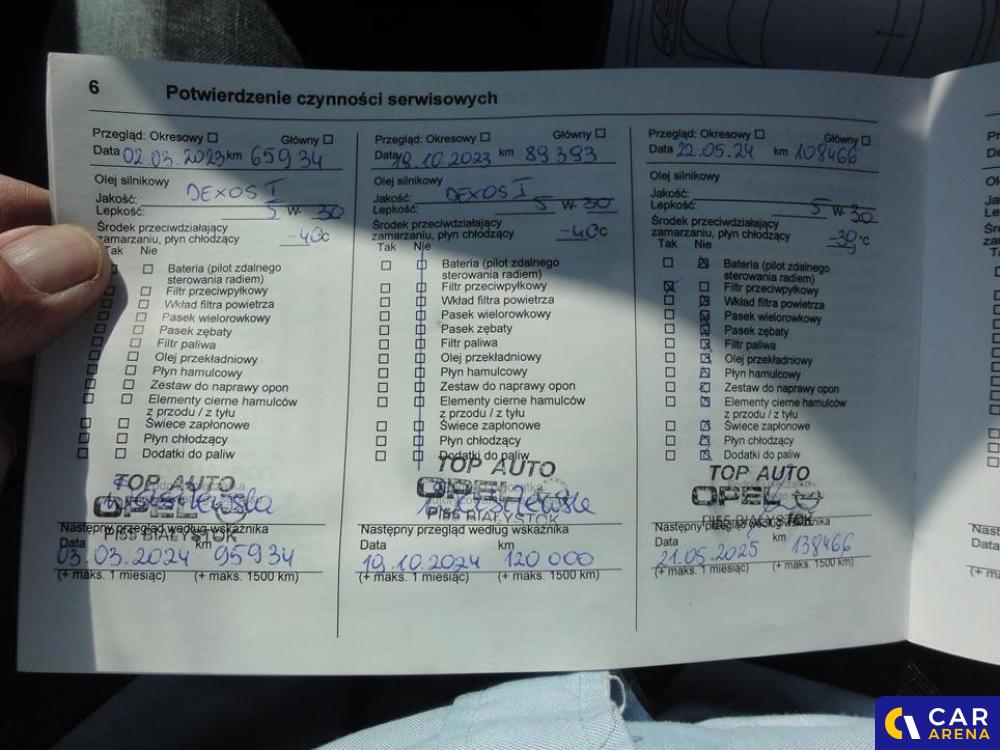 6 Potwierdzenie czynności serwisowych
Przegląd: Okresowy Główny
Data 02.03.2023 km 65934
Olej silnikowy
Jakość: DEXOS I
Lepkość: 5 W- 30
Środek przeciwdziałający
zamarzaniu, płyn chłodzący -40c
Tak Nie
Bateria (pilot zdalnego
sterowania radiem)
Filtr przeciwpyłkowy
Wkład filtra powietrza
Pasek wielorowkowy
Pasek zębaty
Filtr paliwa
Olej przekładniowy
Płyn hamulcowy
Zestaw do naprawy opon
Elementy cierne hamulców
z przodu / z tyłu
Świece zapłonowe
Płyn chłodzący
Dodatki do paliw
TOP AUTO
OPEL
P155 BIAŁYSTOK
Następny przegląd według wskaźnika
Data km
03.03.2024 95934
(+ maks. 1 miesiąc) (+ maks. 1500 km)
Przegląd: Okresowy Główny
Data 19.10.2023 km 89393
Olej silnikowy
Jakość: DEXOS I
Lepkość: 5 W- 30
Środek przeciwdziałający
zamarzaniu, płyn chłodzący -40c
Tak Nie
Bateria (pilot zdalnego
sterowania radiem)
Filtr przeciwpyłkowy
Wkład filtra powietrza
Pasek wielorowkowy
Pasek zębaty
Filtr paliwa
Olej przekładniowy
Płyn hamulcowy
Zestaw do naprawy opon
Elementy cierne hamulców
z przodu / z tyłu
Świece zapłonowe
Płyn chłodzący
Dodatki do paliw
TOP AUTO
OPEL
P155 BIAŁYSTOK
Następny przegląd według wskaźnika
Data km
19.10.2024 120 000
(+ maks. 1 miesiąc) (+ maks. 1500 km)
Przegląd: Okresowy Główny
Data 22.05.24 km 108466
Olej silnikowy
Jakość:
Lepkość: 5 W- 30
Środek przeciwdziałający
zamarzaniu, płyn chłodzący -39°C
Tak Nie
Bateria (pilot zdalnego
sterowania radiem)
Filtr przeciwpyłkowy
Wkład filtra powietrza
Pasek wielorowkowy
Pasek zębaty
Filtr paliwa
Olej przekładniowy
Płyn hamulcowy
Zestaw do naprawy opon
Elementy cierne hamulców
z przodu / z tyłu
Świece zapłonowe
Płyn chłodzący
Dodatki do paliw
TOP AUTO
OPEL
P155 BIAŁYSTOK
Następny przegląd według wskaźnika
Data km
21.05.2025 138466
(+ maks. 1 miesiąc) (+ maks. 1500 km)
CAR
ARENA